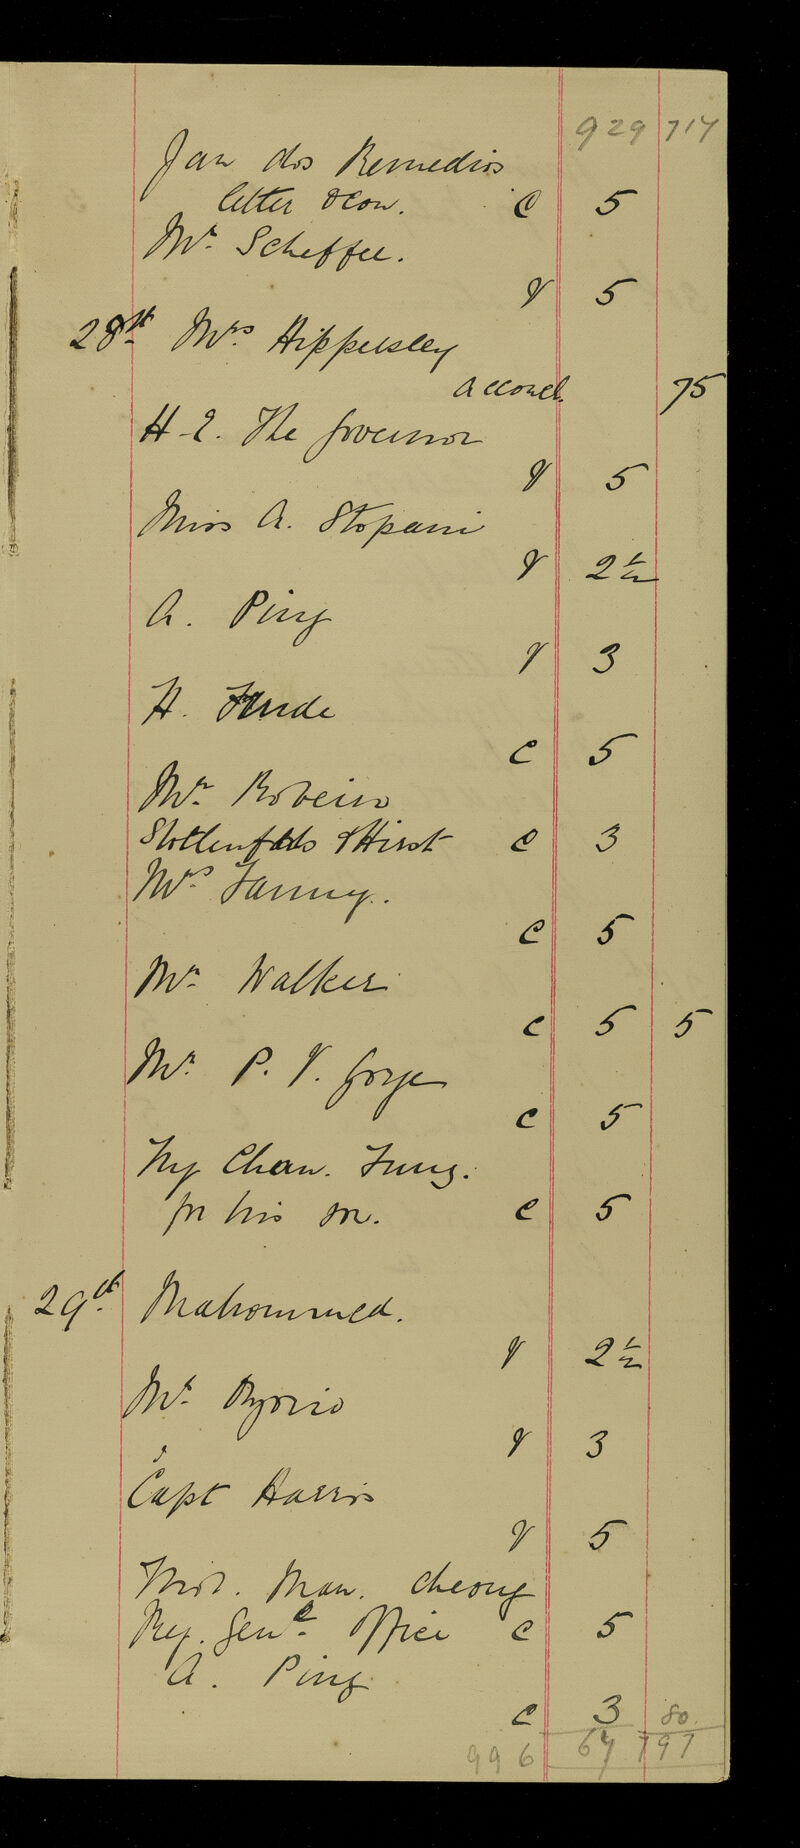 929 717
Jan dos Remedios
letter &con. C 5
Mr. Scheffee.
V 5
28th Mrs. Hippesley
accouch. 75
H.E. The Governor
V 5
Miss A. Stopani
V 2½
A. Ping
V 3
H.
C 5
Mr. Robeiro
& Hirst C 3
Mrs. Fanny.
C 5
Mr. Walker
C 5 5
Mr. P. V.
C 5
Ny Chan. Fung.
for his son. C 5
29th Mahommed.
V 2½
Mr. Ozorio
V 3
Capt Harris
V 5
Man. Cheong
Reg. Genl. Office C 5
A. Ping
C 3 80
996 67 797